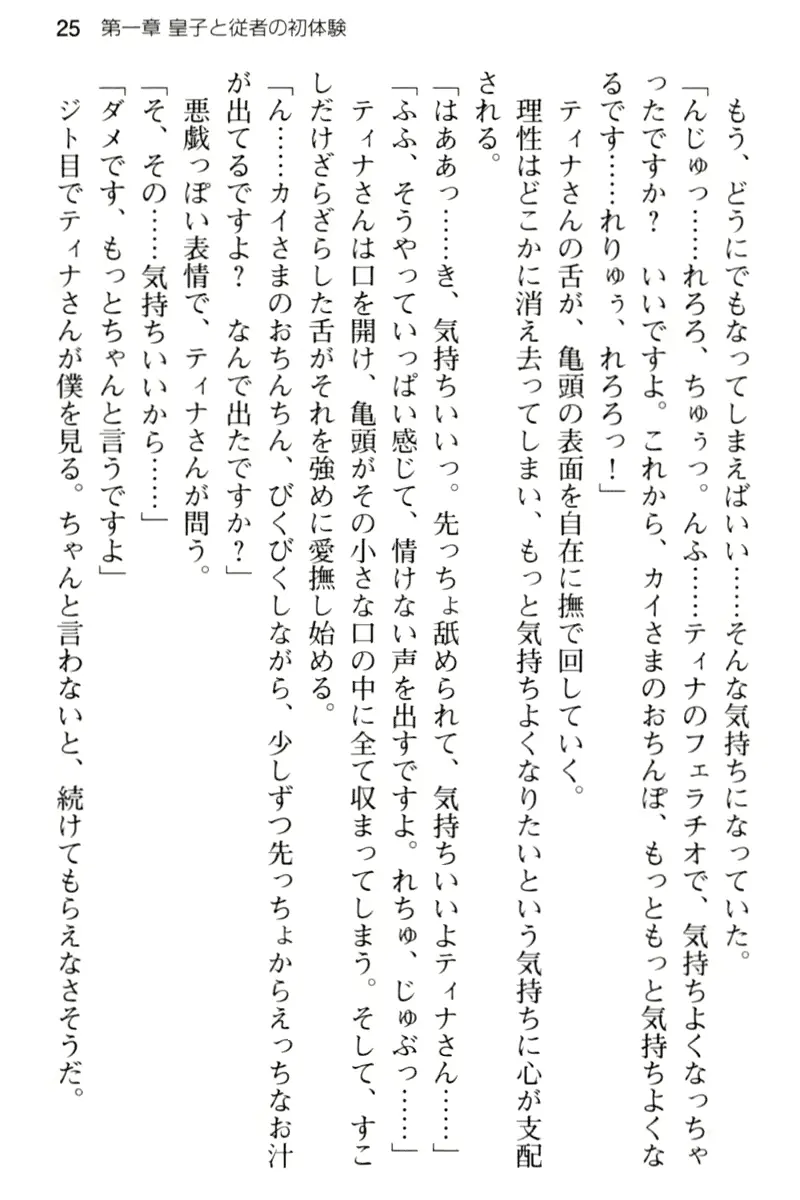 25 第一章 皇子と従者の初体験
もう、どうにでもなってしまえばいい……そんな気持ちになっていた。
「んじゅっ……れろろ、ちゅぅっ。んふ……ティナのフェラチオで、気持ちよくなっちゃ
ったですか？　いいですよ。これから、カイさまのおちんぽ、もっともっと気持ちよくな
るです……れりゅぅ、れろろっ！」
ティナさんの舌が、亀頭の表面を自在に撫で回していく。
理性はどこかに消え去ってしまい、もっと気持ちよくなりたいという気持ちに心が支配
される。
「はああっ……き、気持ちいいっ。先っちょ舐められて、気持ちいいよティナさん……」
「ふふ、そうやっていっぱい感じて、情けない声を出すですよ。れちゅ、じゅぶっ……」
ティナさんは口を開け、亀頭がその小さな口の中に全て収まってしまう。そして、すこ
しだけざらざらした舌がそれを強めに愛撫し始める。
「ん……カイさまのおちんちん、びくびくしながら、少しずつ先っちょからえっちなお汁
が出てるですよ？　なんで出たですか？」
悪戯っぽい表情で、ティナさんが問う。
「そ、その……気持ちいいから……」
「ダメです、もっとちゃんと言うですよ」
ジト目でティナさんが僕を見る。ちゃんと言わないと、続けてもらえなさそうだ。